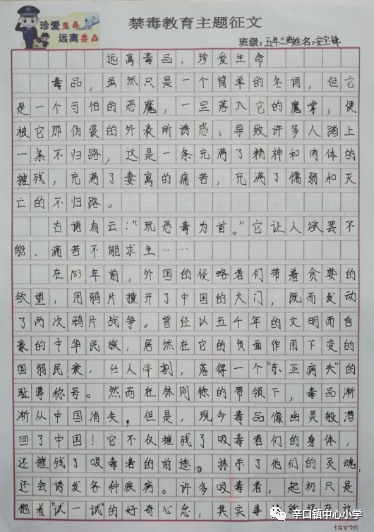 珍爱生命
远离毒品
禁毒教育主题征文
班级:五年 班 姓名:安
远离毒品,珍爱生命
毒品,虽然只是一个简单的名词,但它
是一个可怕的恶魔,一旦落入它的魔掌,便
被它那伪装的外表所诱惑,导致许多人踏上
一条不归路,这是一条充满了精神和肉体的
摧残,充满了妻离的痛苦,充满了懦弱和灭
亡的不归路。
古语有云:“ 恶毒为首。”它让人欲罢不
能、痛苦不能求生……
在183年前,外国的侵略者们带着贪婪的
欲望,用鸦片撞开了中国的大门,既而发动
了两次鸦片战争。曾经以五千年的文明而自
豪的中华民族,居然在它的负面作用下变的
国弱民衰,任人宰割,落得一个“东亚病夫”的
耻辱称号。然而在林则徐的带领下,毒品渐
渐从中国消失,但是,现今毒品像幽灵般潜
回了中国!它不仅摧残了吸毒者们的身体,
还摧残了吸毒者的前途,抹杀了他们的灵魂,
还会诱发各种疾病。许多吸毒者,起初只是
抱着“试一试”的好奇心态,其实事
辛口镇中心小学
19X20